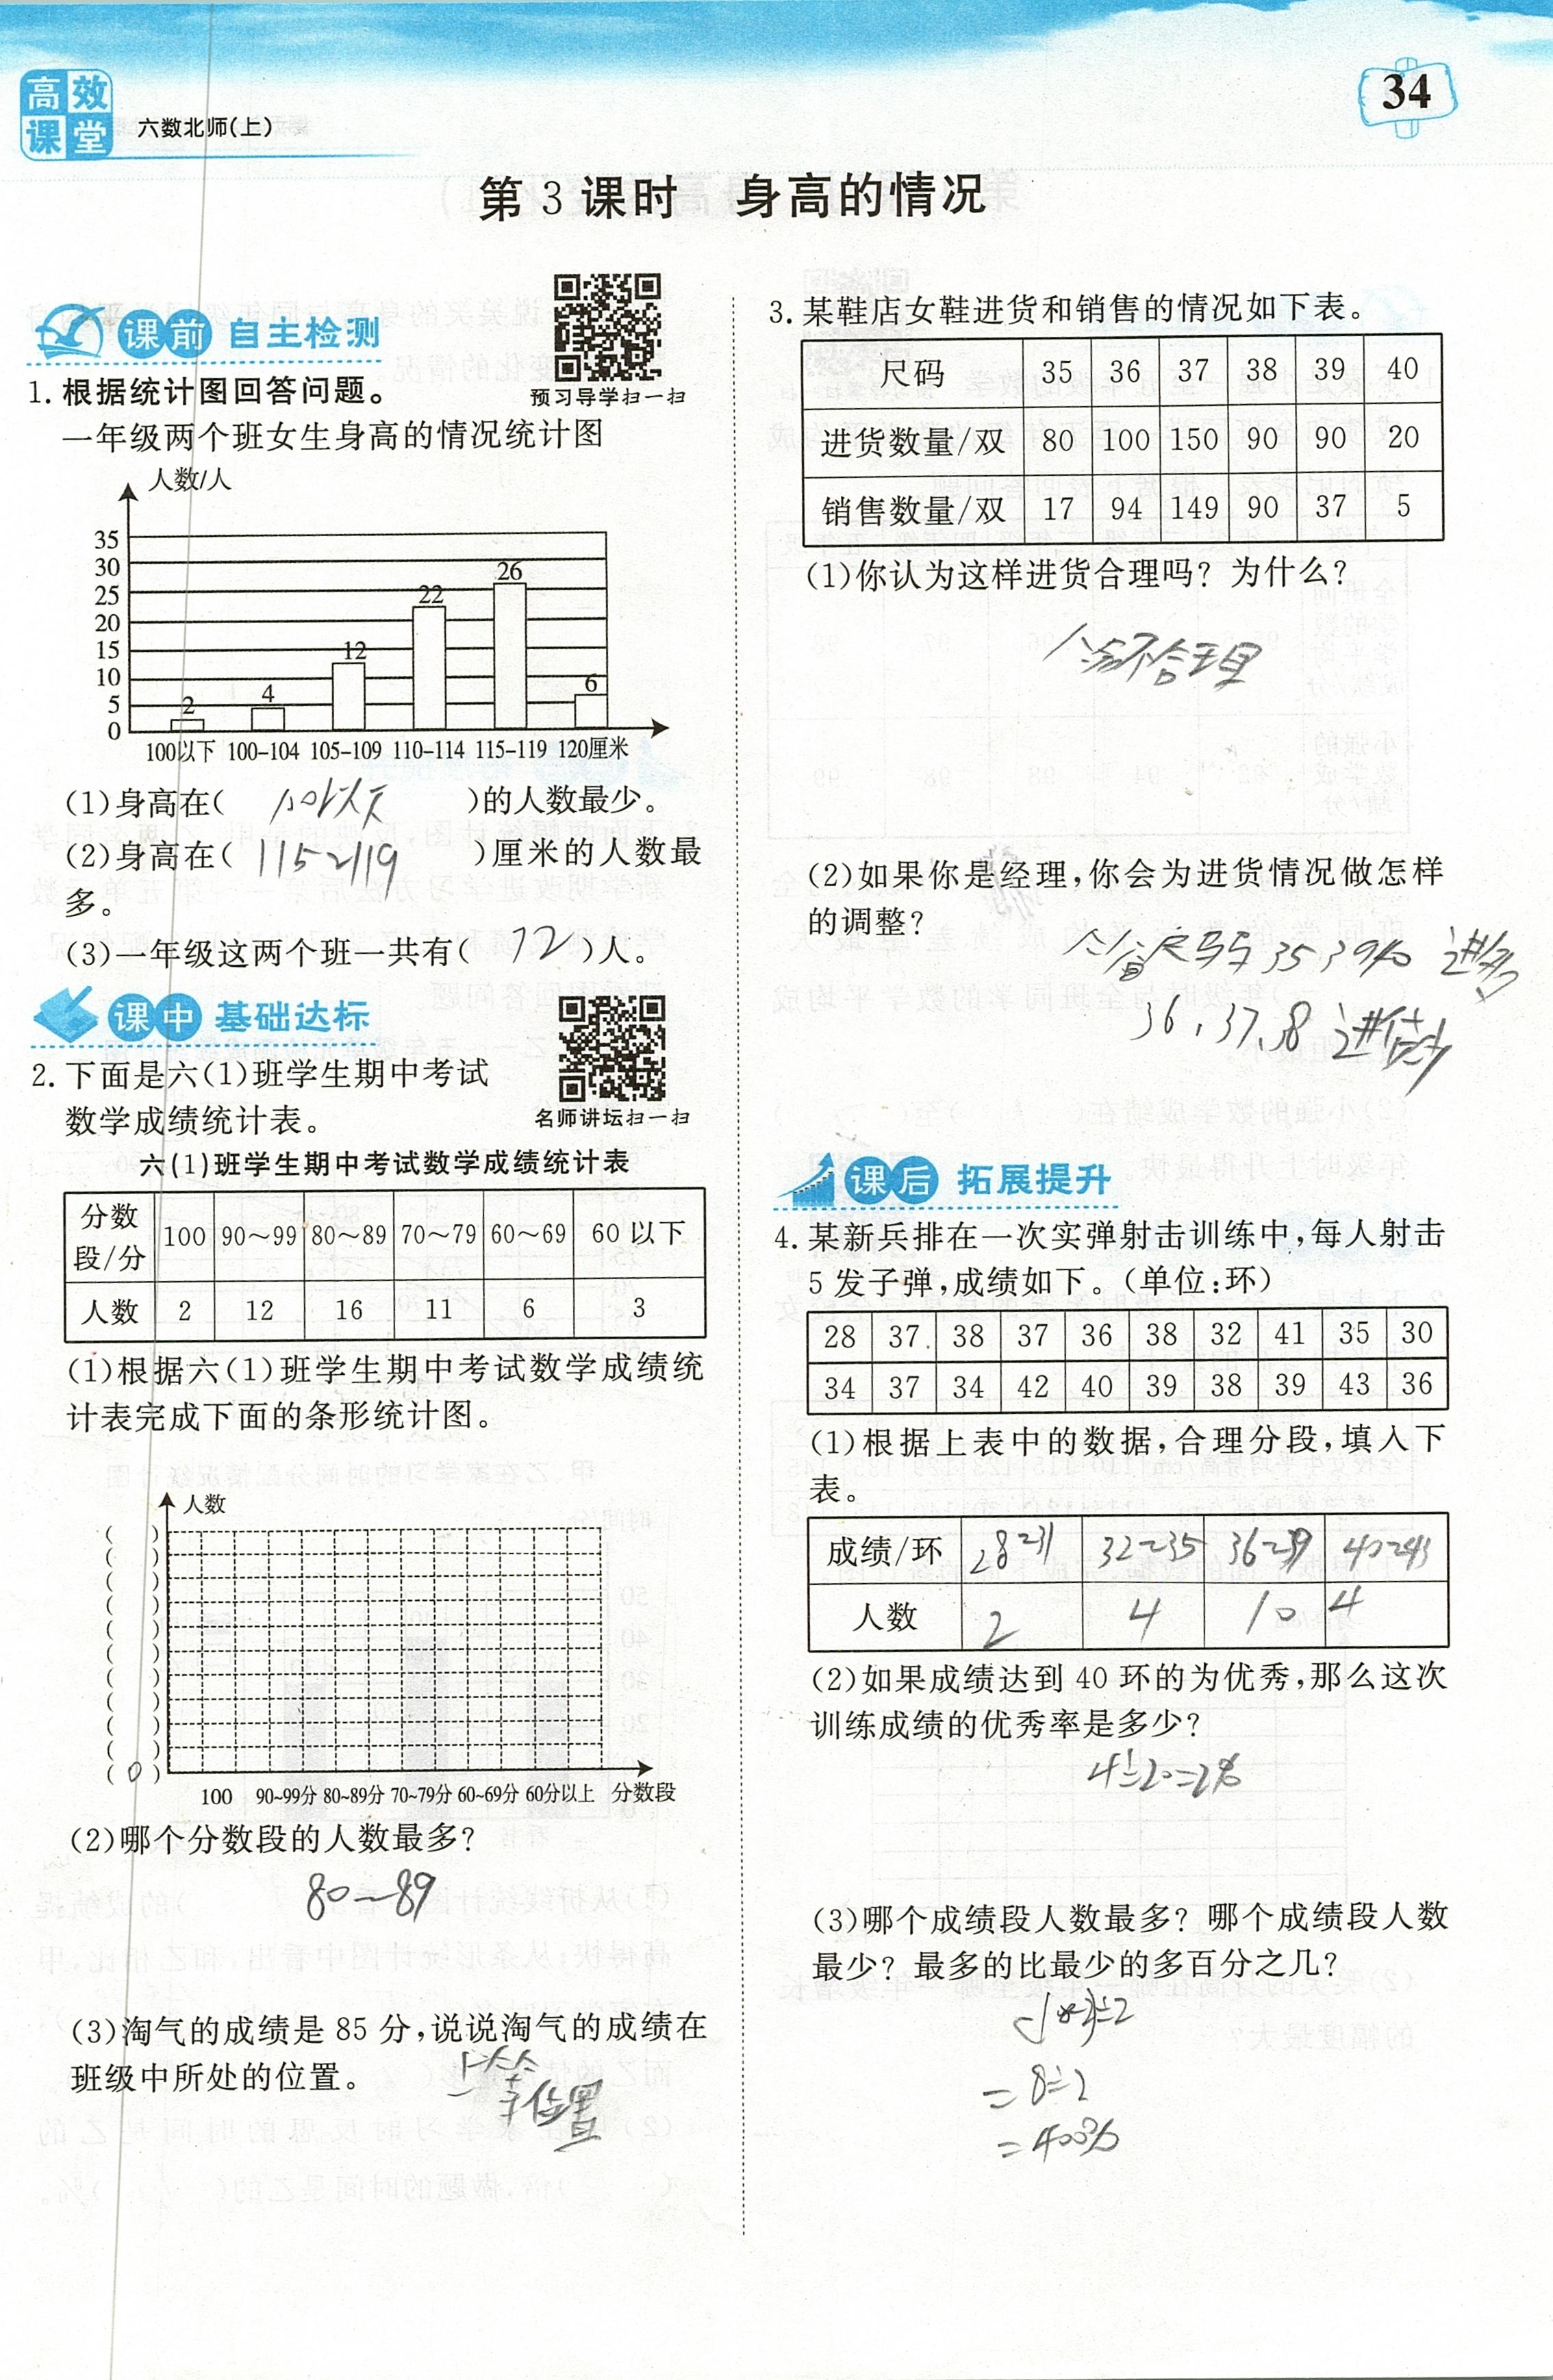 高效课堂
六数北师(上)
34
第 3 课时 身高的情况
课前 自主检测
预习导学扫一扫
1. 根据统计图回答问题。
一年级两个班女生身高的情况统计图
人数/人
35
30
25
20
15
10
5
0
2 4 12 22 26 6
100以下 100-104 105-109 110-114 115-119 120厘米
(1)身高在( 100以下 )的人数最少。
(2)身高在( 115~119 )厘米的人数最
多。
(3)一年级这两个班一共有( 72 )人。
课中 基础达标
名师讲坛扫一扫
2. 下面是六(1)班学生期中考试
数学成绩统计表。
六(1)班学生期中考试数学成绩统计表
分数段/分 100 90～99 80～89 70～79 60～69 60 以下
人数 2 12 16 11 6 3
(1)根据六(1)班学生期中考试数学成绩统
计表完成下面的条形统计图。
人数
( )
( )
( )
( )
( )
( )
( )
( )
( )
( )
( 0 )
100 90~99分 80~89分 70~79分 60~69分 60分以上 分数段
(2)哪个分数段的人数最多?
80~89
(3)淘气的成绩是 85 分,说说淘气的成绩在
班级中所处的位置。
位置
3. 某鞋店女鞋进货和销售的情况如下表。
尺码 35 36 37 38 39 40
进货数量/双 80 100 150 90 90 20
销售数量/双 17 94 149 90 37 5
(1)你认为这样进货合理吗? 为什么?
不合理
(2)如果你是经理,你会为进货情况做怎样
的调整?
35 39 40 进
36, 37, 38 进
课后 拓展提升
4. 某新兵排在一次实弹射击训练中,每人射击
5 发子弹,成绩如下。(单位:环)
28 37 38 37 36 38 32 41 35 30
34 37 34 42 40 39 38 39 43 36
(1)根据上表中的数据,合理分段,填入下
表。
成绩/环 28~31 32~35 36~39 40~43
人数 2 4 10 4
(2)如果成绩达到 40 环的为优秀,那么这次
训练成绩的优秀率是多少?
4÷20=2%
(3)哪个成绩段人数最多? 哪个成绩段人数
最少? 最多的比最少的多百分之几?
=8÷2
=400%